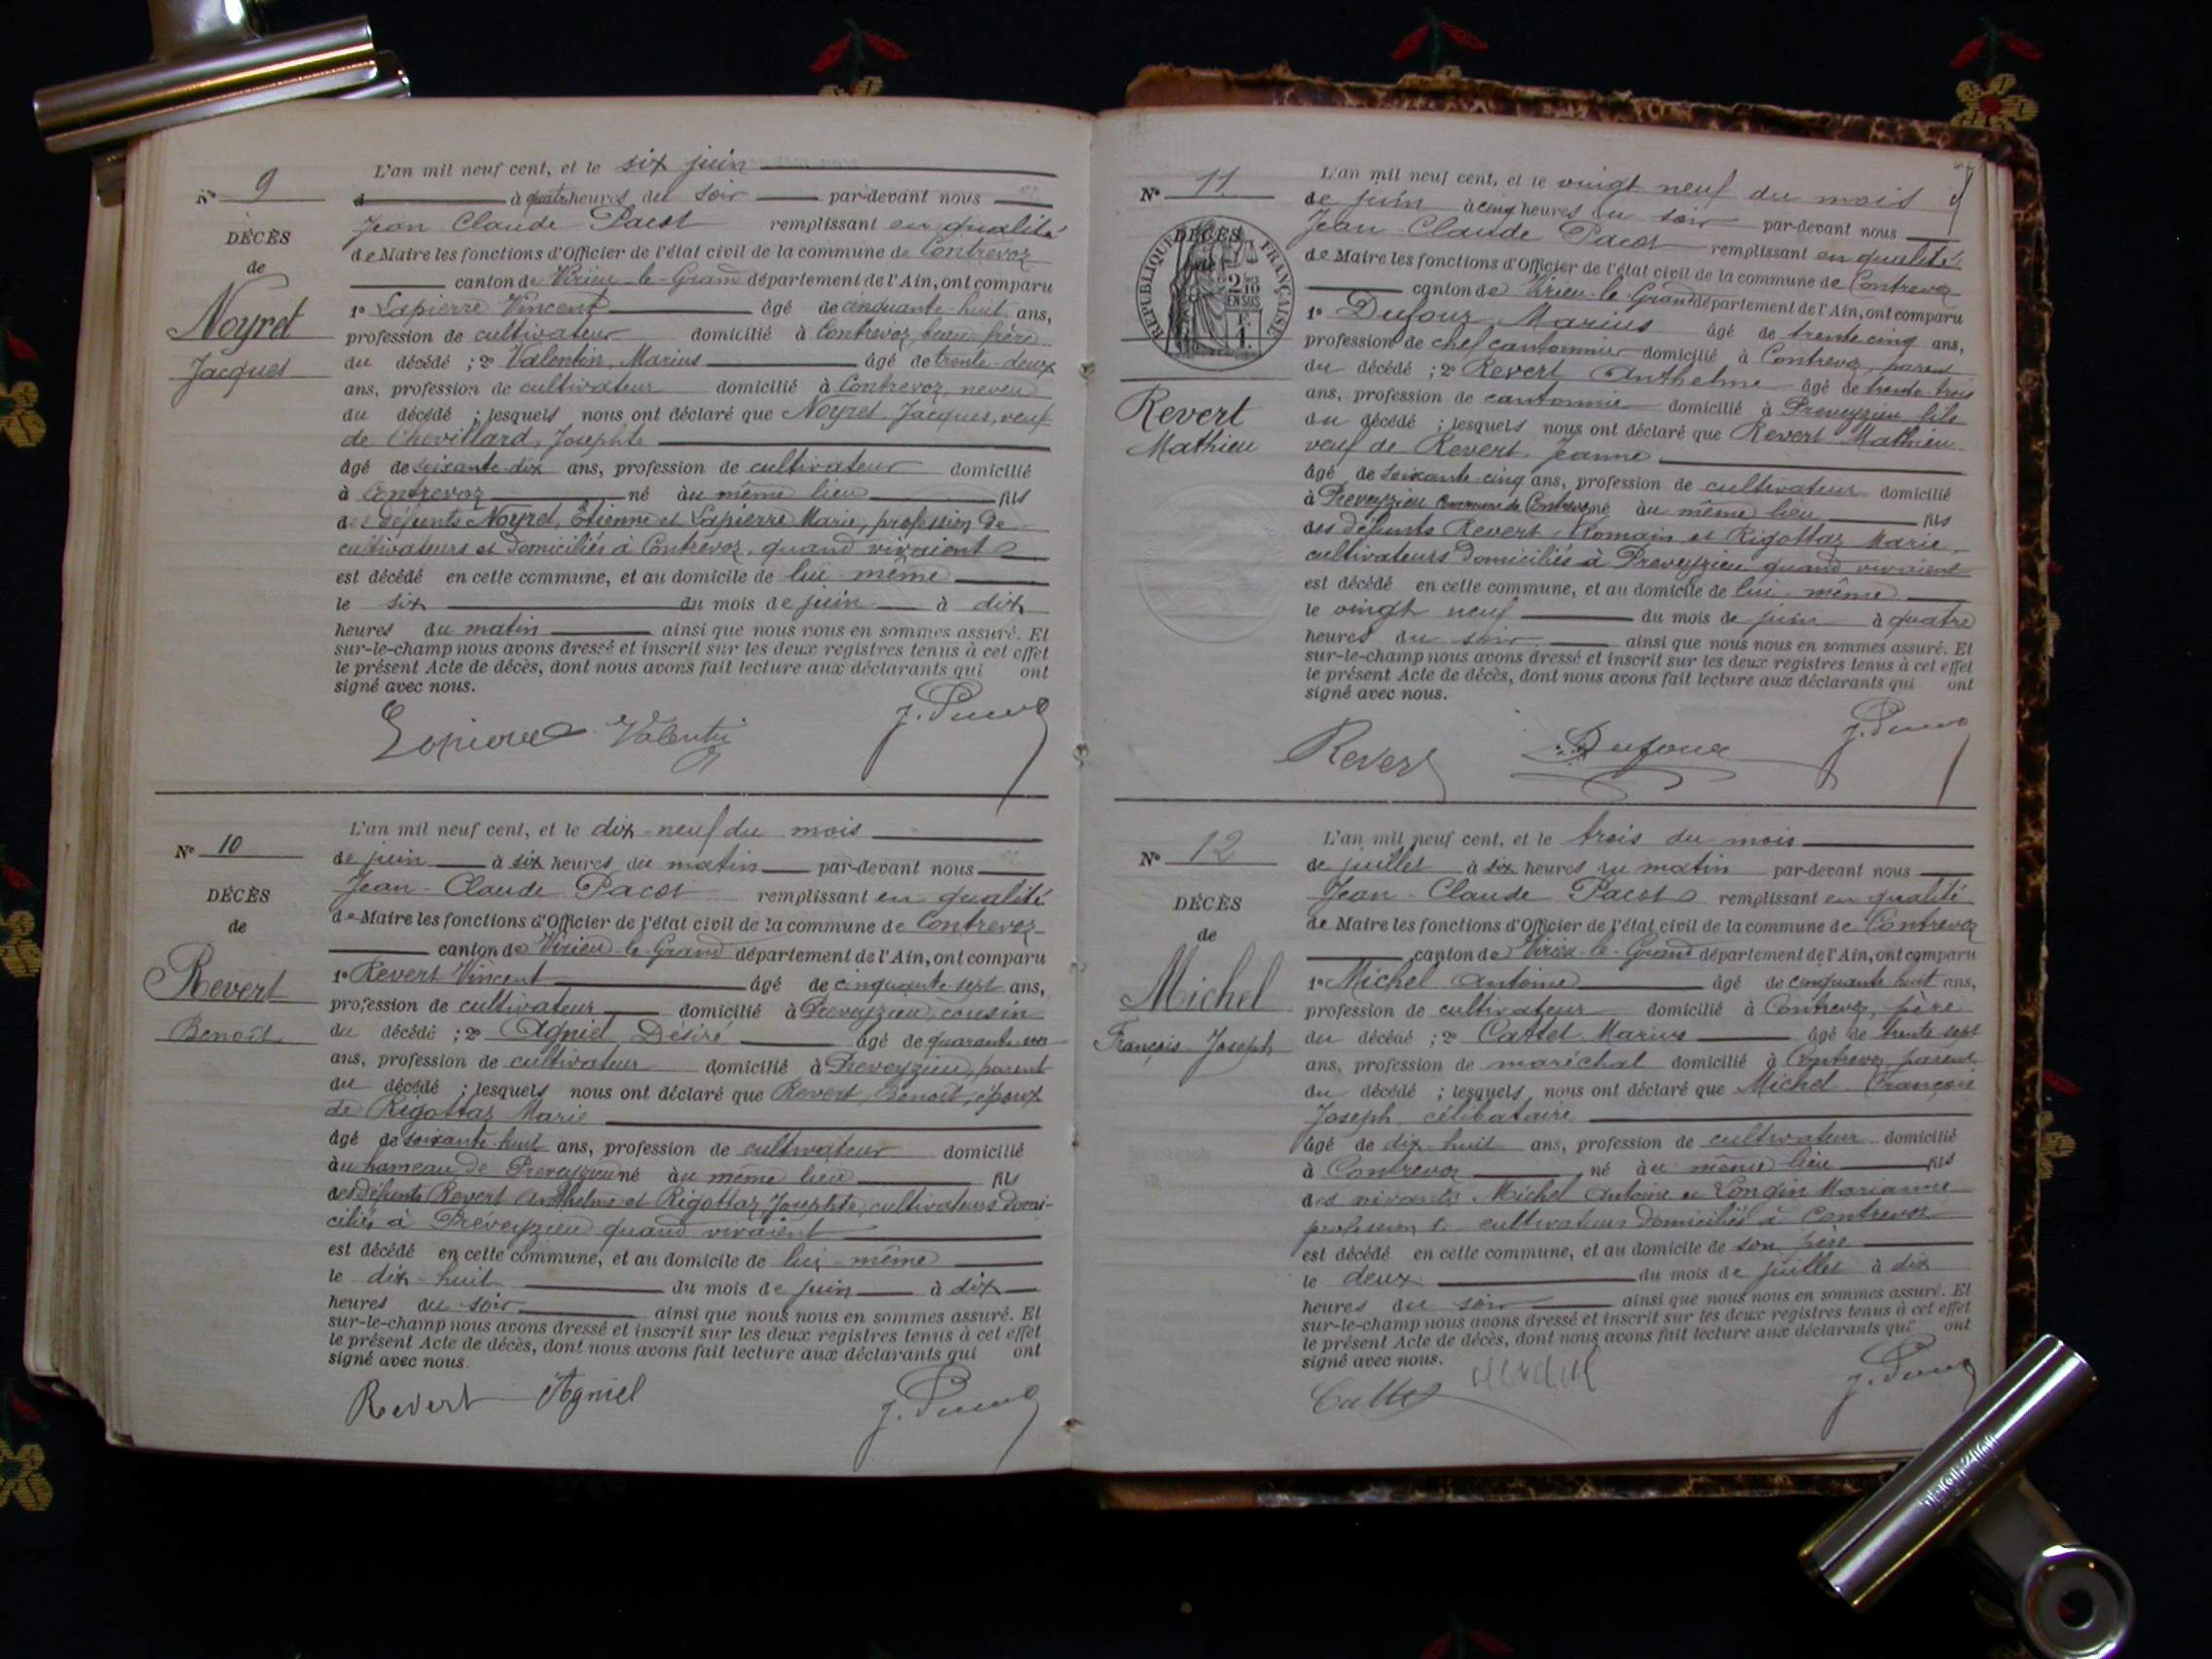 N° 9
DÉCÈS
de
Noyret
Jacques
L'an mil neuf cent, et le six juin
à quatre heures du soir par-devant nous
Jean Claude Pacot remplissant en qualité
de Maire les fonctions d'Officier de l'état civil de la commune de Contrevoz
canton de Virieu-le-Grand département de l'Ain, ont comparu
1° Lapierre Vincent âgé de cinquante huit ans,
profession de cultivateur domicilié à Contrevoz, beau frère
du décédé ; 2° Valentin Marius âgé de trente deux
ans, profession de cultivateur domicilié à Contrevoz, neveu
du décédé ; lesquels nous ont déclaré que Noyret Jacques, veuf
de Chevillard, Josephte
âgé de soixante dix ans, profession de cultivateur domicilié
à Contrevoz né au même lieu fils
des défunts Noyret, Étienne et Lapierre Marie, profession de
cultivateurs et domiciliés à Contrevoz, quand vivaient
est décédé en cette commune, et au domicile de lui même
le six du mois de juin à dix
heures du matin ainsi que nous nous en sommes assuré. Et
sur-le-champ nous avons dressé et inscrit sur les deux registres tenus à cet effet
le présent Acte de décès, dont nous avons fait lecture aux déclarants qui ont
signé avec nous.
Lapierre Valentin J. Pacot
N° 10
DÉCÈS
de
Revert
Benoît
L'an mil neuf cent, et le dix-neuf du mois
de juin à six heures du matin par-devant nous
Jean-Claude Pacot remplissant en qualité
de Maire les fonctions d'Officier de l'état civil de la commune de Contrevoz
canton de Virieu-le-Grand département de l'Ain, ont comparu
1° Revert Vincent âgé de cinquante sept ans,
profession de cultivateur domicilié à Preveyzieu, cousin
du décédé ; 2° Agniel Désiré âgé de quarante
ans, profession de cultivateur domicilié à Preveyzieu, parent
du décédé ; lesquels nous ont déclaré que Revert, Benoît, époux
de Rigottaz Marie
âgé de soixante-huit ans, profession de cultivateur domicilié
au hameau de Preveyzieu né au même lieu fils
des défunts Revert Anthelme et Rigottaz Josephte, cultivateurs domi-
ciliés à Préveyzieu quand vivaient
est décédé en cette commune, et au domicile de lui-même
le dix-huit du mois de juin à dix
heures du soir ainsi que nous nous en sommes assuré. Et
sur-le-champ nous avons dressé et inscrit sur les deux registres tenus à cet effet
le présent Acte de décès, dont nous avons fait lecture aux déclarants qui ont
signé avec nous.
Revert Agniel J. Pacot
N° 11
DÉCÈS
de
RÉPUBLIQUE FRANÇAISE
2/10
EN SUS
1.
Revert
Mathieu
L'an mil neuf cent, et le vingt neuf du mois
de juin à cinq heures du soir par-devant nous
Jean-Claude Pacot remplissant en qualité
de Maire les fonctions d'Officier de l'état civil de la commune de Contrevoz
canton de Virieu-le-Grand département de l'Ain, ont comparu
1° Dufour Marius âgé de trente cinq ans,
profession de chef cantonnier domicilié à Contrevoz, parent
du décédé ; 2° Revert Anthelme âgé de trente-trois
ans, profession de cantonnier domicilié à Preveyzieu fils
du décédé ; lesquels nous ont déclaré que Revert Mathieu
veuf de Revert Jeanne
âgé de soixante-cinq ans, profession de cultivateur domicilié
à Preveyzieu commune de Contrevoz né au même lieu fils
des défunts Revert, Romain et Rigottaz Marie,
cultivateurs domiciliés à Preveyzieu quand vivaient
est décédé en cette commune, et au domicile de lui-même
le vingt neuf du mois de juin à quatre
heures du soir ainsi que nous nous en sommes assuré. Et
sur-le-champ nous avons dressé et inscrit sur les deux registres tenus à cet effet
le présent Acte de décès, dont nous avons fait lecture aux déclarants qui ont
signé avec nous.
Revert Dufour J. Pacot
N° 12
DÉCÈS
de
Michel
François Joseph
L'an mil neuf cent, et le trois du mois
de juillet à six heures du matin par-devant nous
Jean-Claude Pacot remplissant en qualité
de Maire les fonctions d'Officier de l'état civil de la commune de Contrevoz
canton de Virieu-le-Grand département de l'Ain, ont comparu
1° Michel Antoine âgé de cinquante huit ans,
profession de cultivateur domicilié à Contrevoz, père
du décédé ; 2° Marius âgé de trente sept
ans, profession de maréchal domicilié à Contrevoz parent
du décédé ; lesquels nous ont déclaré que Michel François
Joseph célibataire
âgé de dix-huit ans, profession de cultivateur domicilié
à Contrevoz né au même lieu fils
des vivants Michel Antoine et Longin Marianne
profession de cultivateurs domiciliés à Contrevoz
est décédé en cette commune, et au domicile de son père
le deux du mois de juillet à dix
heures du soir ainsi que nous nous en sommes assuré. Et
sur-le-champ nous avons dressé et inscrit sur les deux registres tenus à cet effet
le présent Acte de décès, dont nous avons fait lecture aux déclarants qui ont
signé avec nous.
J. Pacot